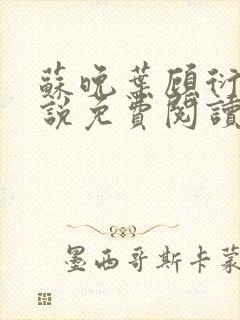 蘇晚葉顧衍
說免費閱讀
墨西哥斯卡蒙